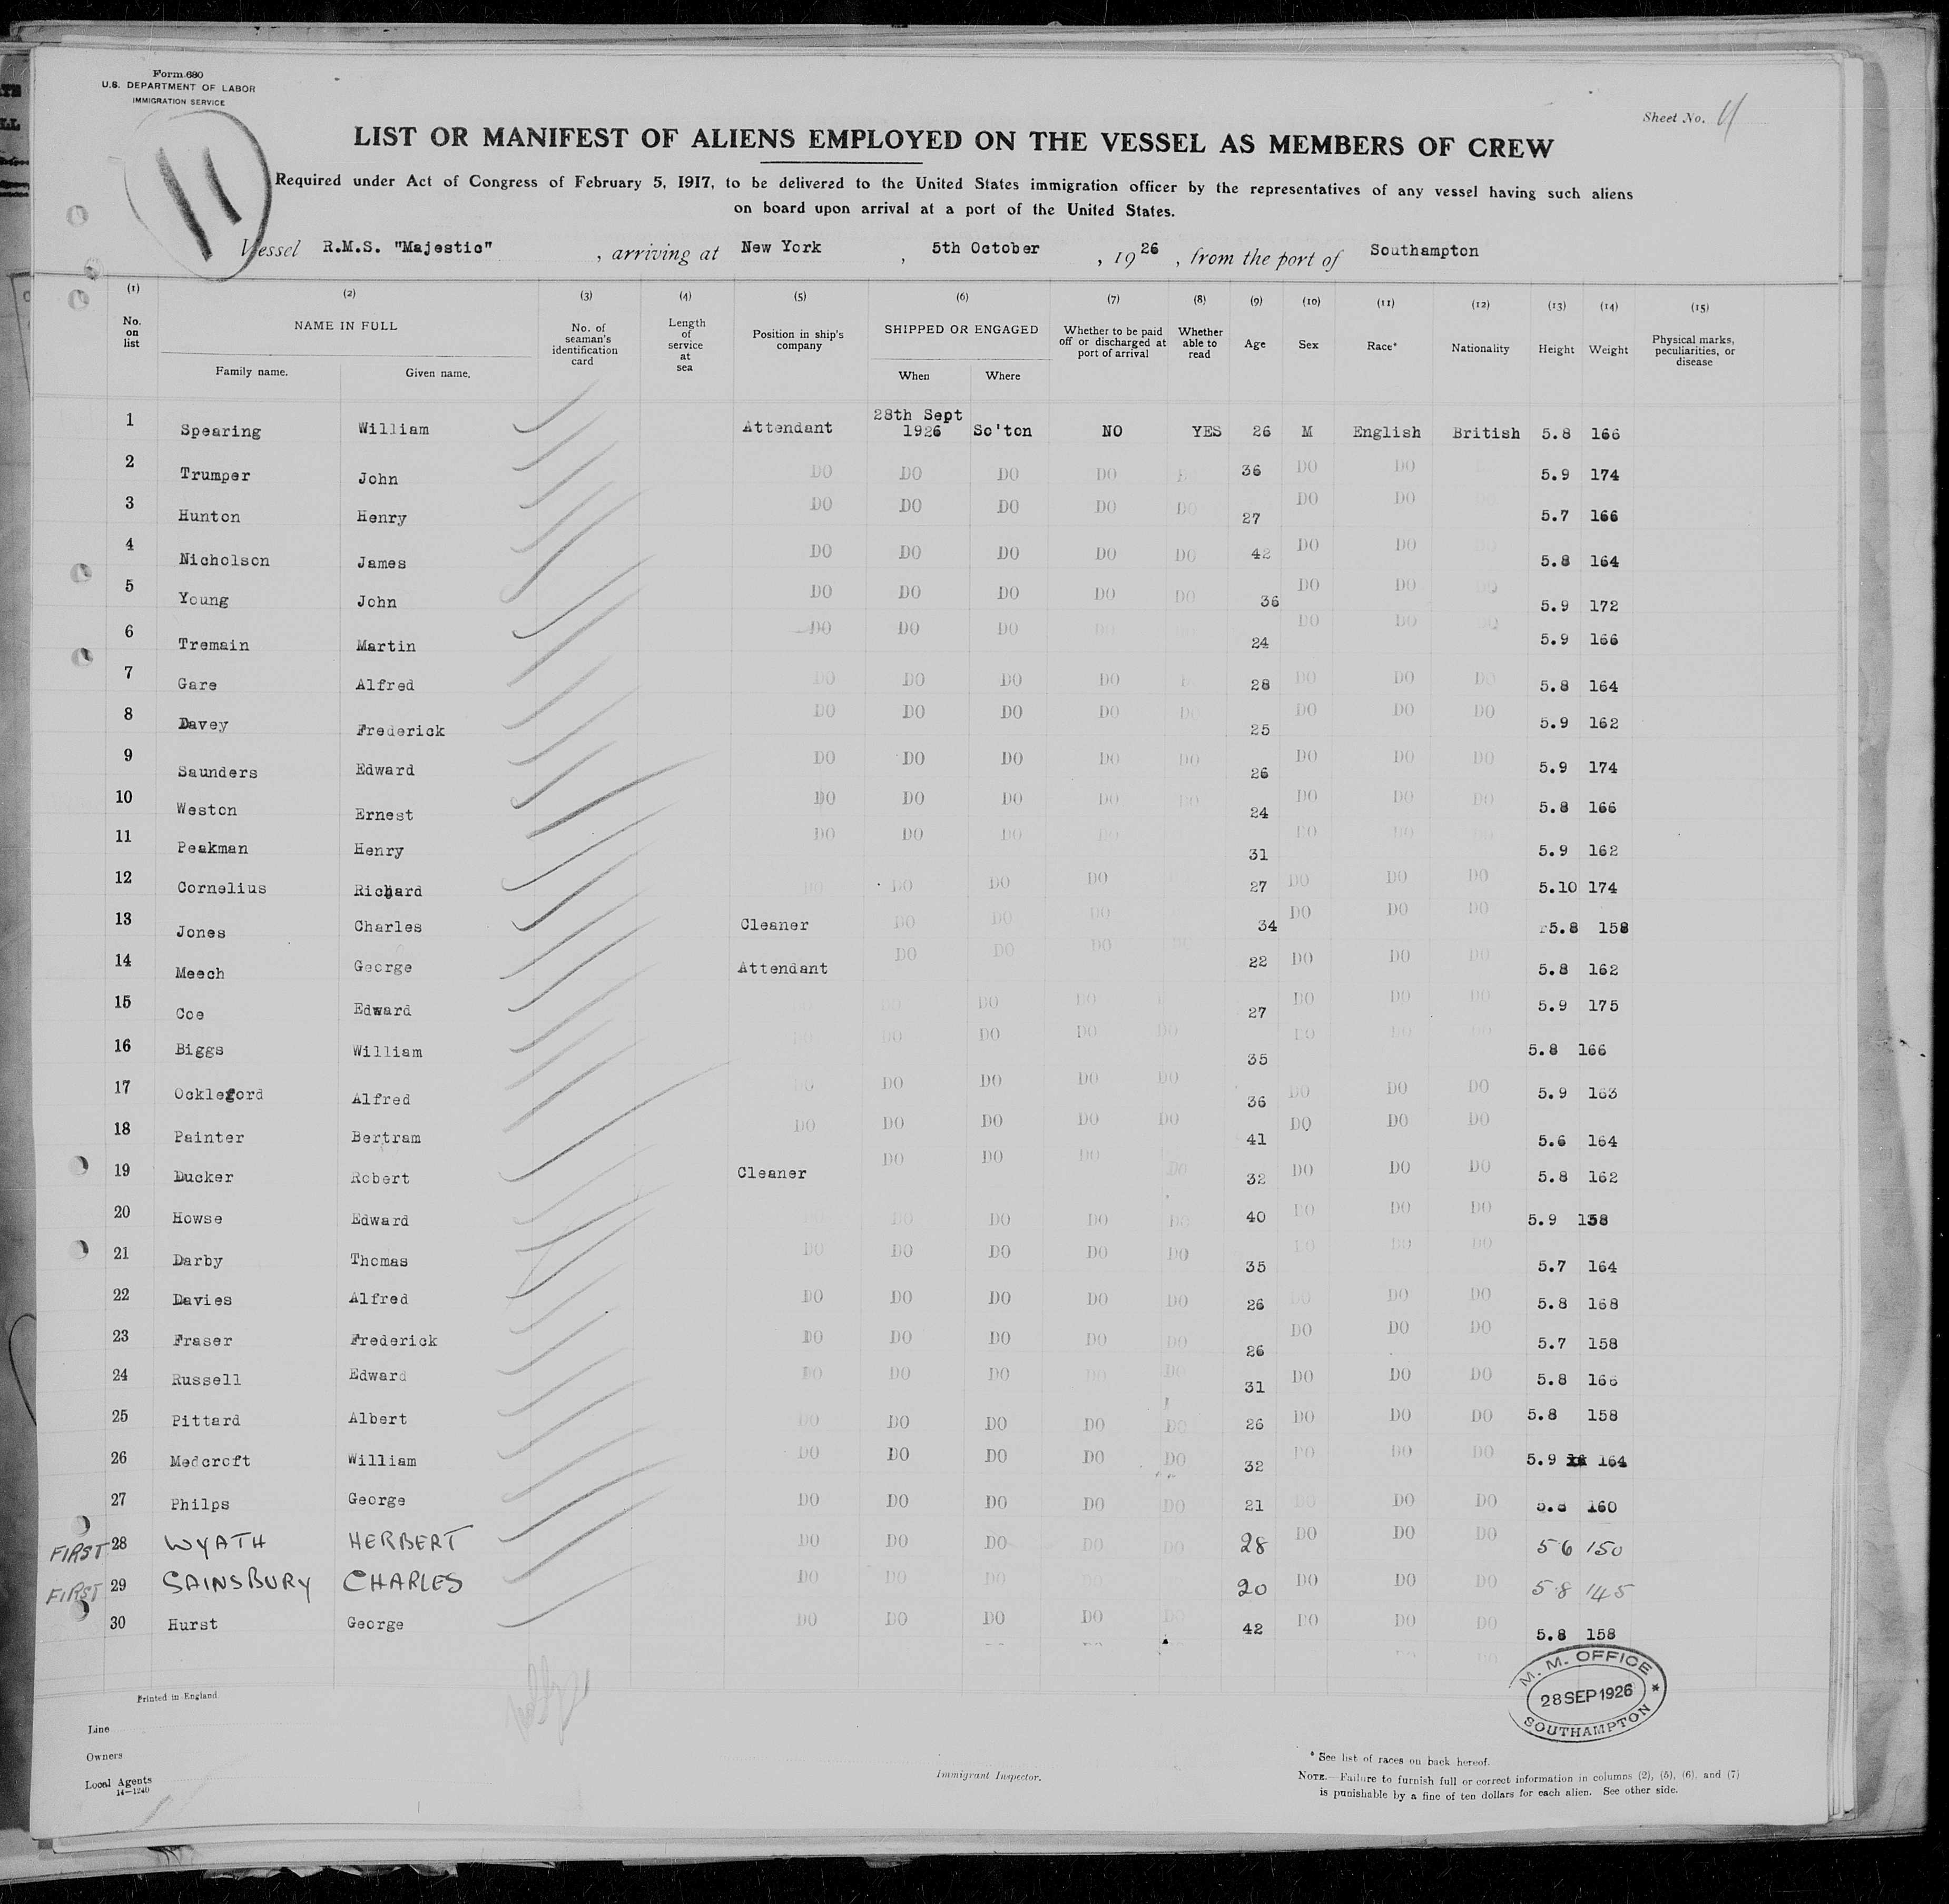 Form 680
U.S. DEPARTMENT OF LABOR
IMMIGRATION SERVICE
Sheet No. 11
11
LIST OR MANIFEST OF ALIENS EMPLOYED ON THE VESSEL AS MEMBERS OF CREW
Required under Act of Congress of February 5, 1917, to be delivered to the United States immigration officer by the representatives of any vessel having such aliens
on board upon arrival at a port of the United States.
Vessel R.M.S. "Majestic" , arriving at New York , 5th October , 1926 , from the port of Southampton
(1) (2) (3) (4) (5) (6) (7) (8) (9) (10) (11) (12) (13) (14) (15)
No. on list NAME IN FULL Family name. Given name. No. of seaman's identification card Length of service at sea Position in ship's company SHIPPED OR ENGAGED When Where Whether to be paid off or discharged at port of arrival Whether able to read Age Sex Race* Nationality Height Weight Physical marks, peculiarities, or disease
1 Spearing William Attendant 28th Sept 1926 So'ton NO YES 26 M English British 5.8 166
2 Trumper John DO DO DO DO 36 DO DO 5.9 174
3 Hunton Henry DO DO DO DO DO 27 DO DO 5.7 166
4 Nicholson James DO DO DO DO DO 42 DO DO 5.8 164
5 Young John DO DO DO DO DO 36 DO DO DO 5.9 172
6 Tremain Martin DO DO DO DO 24 DO DO DO 5.9 166
7 Gare Alfred DO DO DO DO 28 DO DO DO 5.8 164
8 Davey Frederick DO DO DO DO DO 25 DO DO DO 5.9 162
9 Saunders Edward DO DO DO DO DO 26 DO DO DO 5.9 174
10 Weston Ernest DO DO DO DO DO 24 DO DO DO 5.8 166
11 Peakman Henry DO DO DO DO 31 DO DO 5.9 162
12 Cornelius Richard DO DO DO DO 27 DO DO DO 5.10 174
13 Jones Charles Cleaner DO DO DO 34 DO DO DO 5.8 158
14 Meech George Attendant DO DO DO DO 22 DO DO DO 5.8 162
15 Coe Edward DO DO DO 27 DO DO DO 5.9 175
16 Biggs William DO DO DO DO DO 35 DO DO DO 5.8 166
17 Ockleford Alfred DO DO DO DO DO 36 DO DO DO 5.9 163
18 Painter Bertram DO DO DO DO DO 41 DO DO DO 5.6 164
19 Ducker Robert Cleaner DO DO DO DO 32 DO DO DO 5.8 162
20 Howse Edward DO DO DO DO DO 40 DO DO DO 5.9 158
21 Darby Thomas DO DO DO DO DO 35 DO DO DO 5.7 164
22 Davies Alfred DO DO DO DO DO 26 DO DO DO 5.8 168
23 Fraser Frederick DO DO DO DO DO 26 DO DO DO 5.7 158
24 Russell Edward DO DO DO DO DO 31 DO DO DO 5.8 166
25 Pittard Albert DO DO DO DO DO 26 DO DO DO 5.8 158
26 Medcroft William DO DO DO DO DO 32 DO DO DO 5.9 164
27 Philps George DO DO DO DO DO 21 DO DO DO 5.8 160
FIRST 28 WYATH HERBERT DO DO DO DO DO 28 DO DO DO 5 6 150
FIRST 29 SAINSBURY CHARLES DO DO DO 20 DO DO DO 5 8 145
30 Hurst George DO DO DO DO DO 42 DO DO DO 5.8 158
M. M. OFFICE
28 SEP 1926
SOUTHAMPTON
Printed in England
Line
Owners
Local Agents
14-1240
Immigrant Inspector.
* See list of races on back hereof.
NOTE.—Failure to furnish full or correct information in columns (2), (5), (6), and (7)
is punishable by a fine of ten dollars for each alien. See other side.